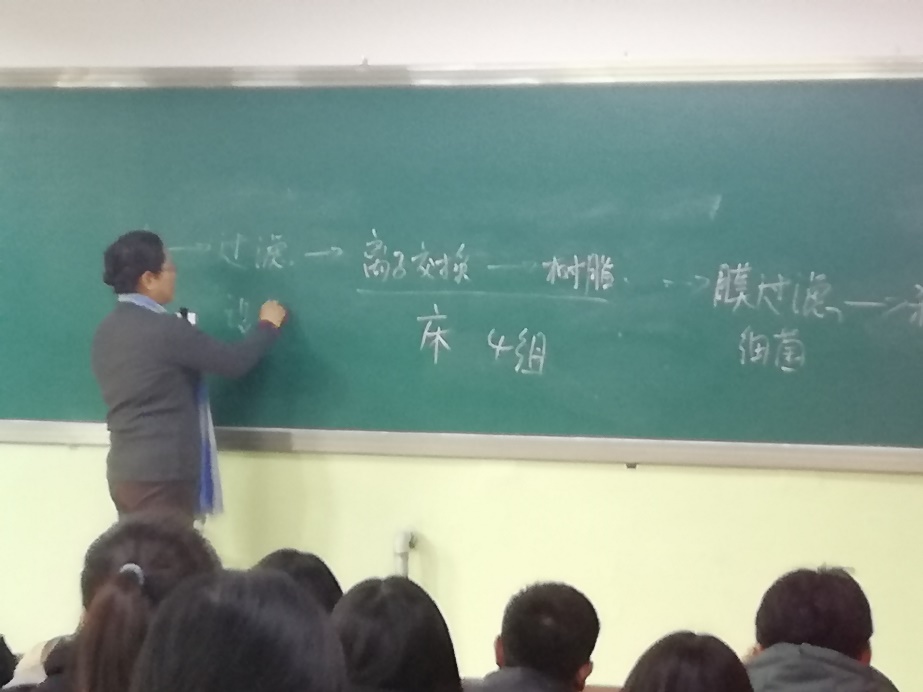 →过滤→离子交换→树脂 → 膜过滤→
床 4组 细菌